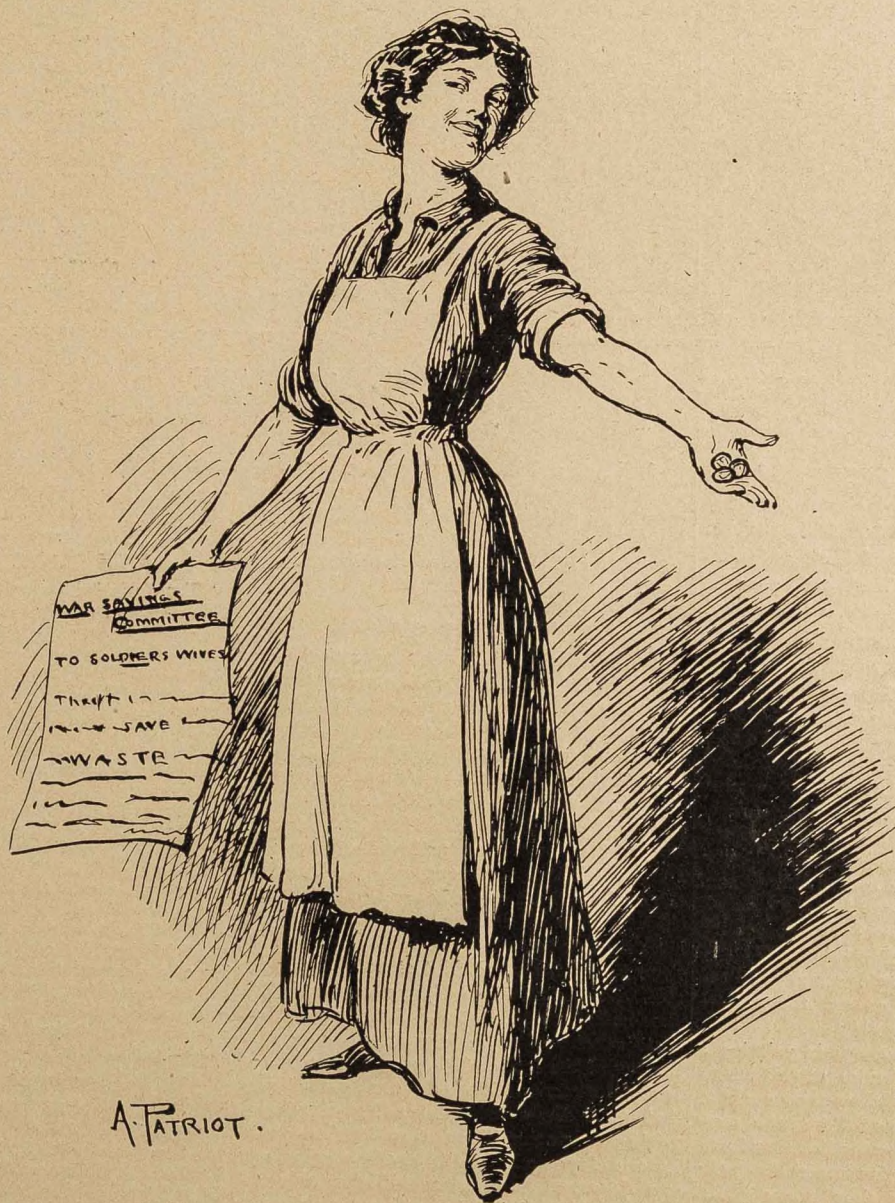 WAR SAVINGS
COMMITTEE
TO SOLDIERS WIVES
Thrift
SAVE
WASTE
A. PATRIOT.